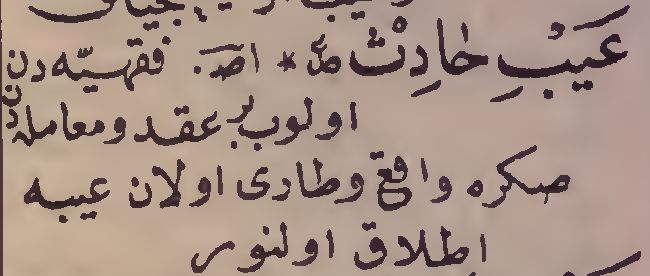 عَيْبِ حَادِثْ * اصـ. فقهيّه دن
اولوب بر عقد و معامله دن
صكره واقع وطارى اولان عيبه
اطلاق اولنور